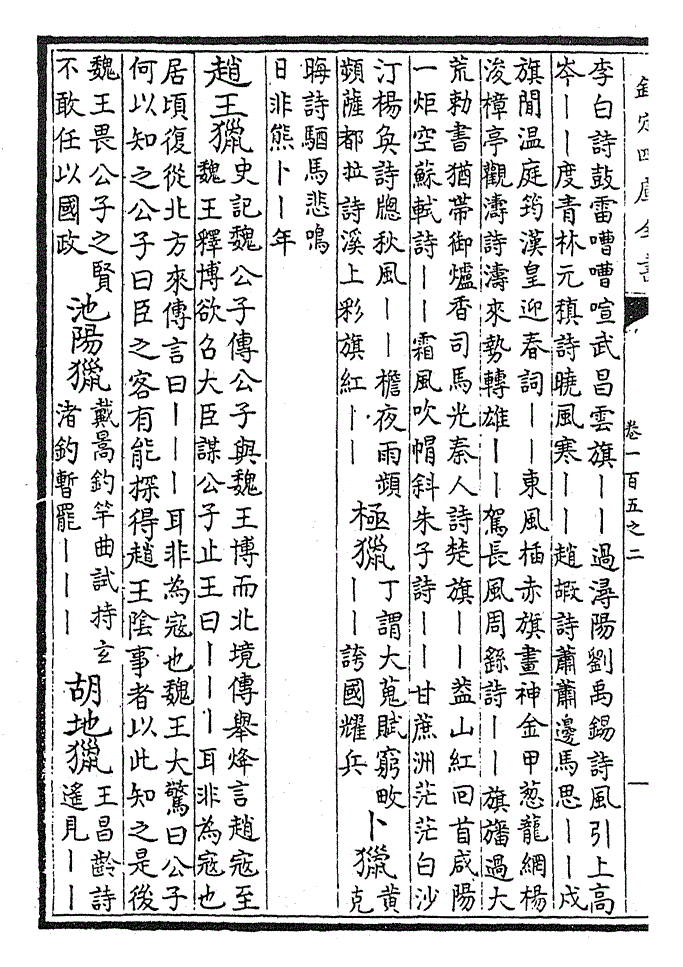 欽定四庫全書
卷一百五之二
一
李白詩鼓雷嘈嘈喧武昌雲旗丨丨過潯陽劉禹錫詩風引上高
岑丨丨度青林元稹詩曉風寒丨丨趙嘏詩蕭蕭邊馬思丨丨戍
旗閒温庭筠漢皇迎春詞丨丨東風插赤旗畫神金甲葱龍網楊
浚樟亭觀濤詩濤來勢轉雄丨丨駕長風周繇詩丨丨旗旛過大
荒勅書猶帶御爐香司馬光秦人詩楚旗丨丨益山紅回首咸陽
一炬空蘇軾詩丨丨霜風吹帽斜朱子詩丨丨甘蔗洲茫茫白沙
汀楊奐詩牕秋風丨丨檐夜雨頻
蘋薩都拉詩溪上彩旗紅丨丨
極獵
丁謂大蒐賦窮畋
丨丨誇國耀兵
卜獵
黄
克
晦詩駟馬悲鳴
日非熊卜丨年
趙王獵
史記魏公子傳公子與魏王博而北境傳舉烽言趙寇至
魏王釋博欲召大臣謀公子止王曰丨丨丨耳非為寇也
居頃復從北方來傳言曰丨丨丨耳非為寇也魏王大驚曰公子
何以知之公子曰臣之客有能探得趙王陰事者以此知之是後
魏王畏公子之賢
不敢任以國政
池陽獵
戴暠釣竿曲試持玄
渚釣暫罷丨丨丨
胡地獵
王昌齡詩
遙見丨丨